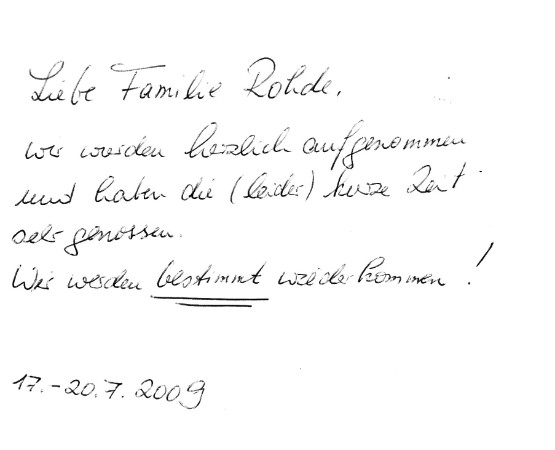 Liebe Familie Rohde,
wir wurden herzlich aufgenommen
und haben die (leider) kurze Zeit
sehr genossen.
Wir werden bestimmt wiederkommen!
17.-20.7.2009